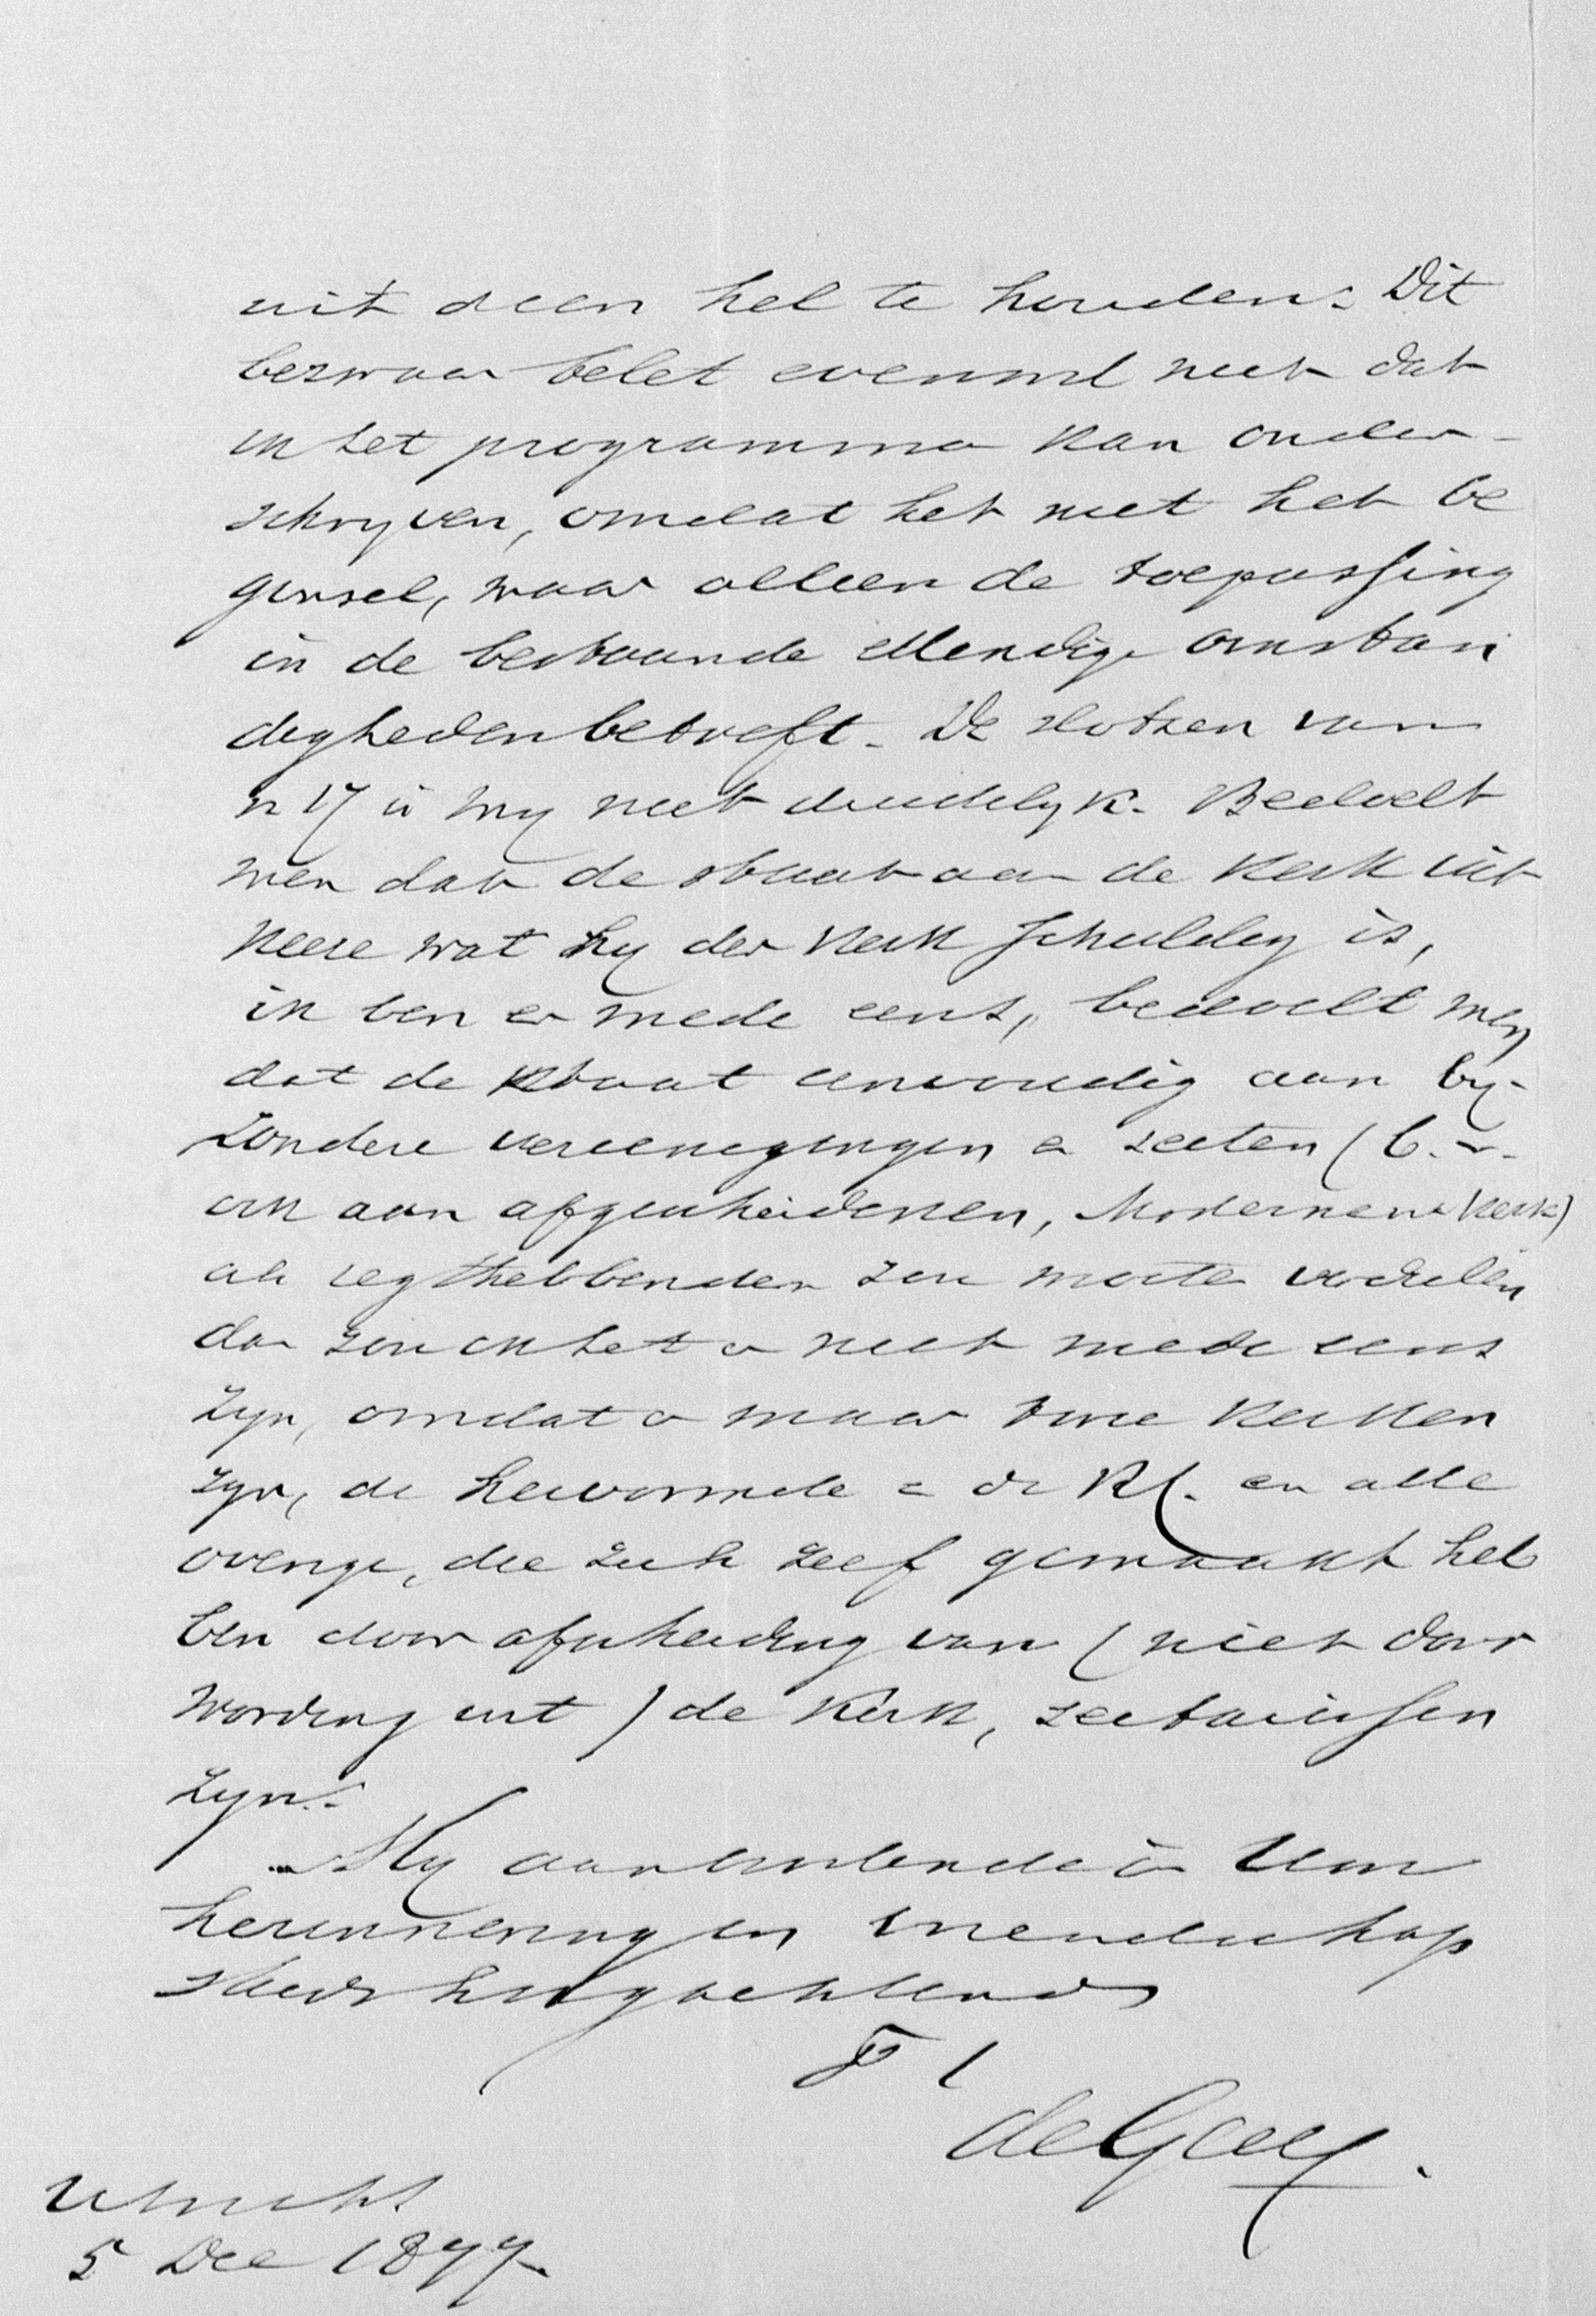 uit deen hel te houden. Dit
bezwaar belet evenwel niet dat
ik het programma kan onder-
schryven, omdat het niet het be
ginsel, maar alleen de toepassing
in de bestaande ellendige omstan
digheden betreft. De slotzen van
n 17 is my niet duidelyk. Bedoelt
men dat de staat aan de Kerk uit
keere wat hy der Kerk schuldig is,
ik ben er mede eens, bedoelt men
dat de staat eenvoudig aan by-
zondere vereenigingen en secten (b.v.
ook aan afgescheidenen, Moderne Kerk)
als regthebbenden zou moeten
dan zou ik het er niet mede eens
zyn, omdat er maar twee Kerken
zyn, de hervormde en de RC. en alle
overige, die zich zelf gemaakt heb
ben door afscheiding van (niet door
wording uit) de Kerk, sectarissen
zyn.
My aanbevelende in Uwe
herinnering en vriendschap
steeds hoogachtend
de Geer.
Utrecht
5 Dec 1877